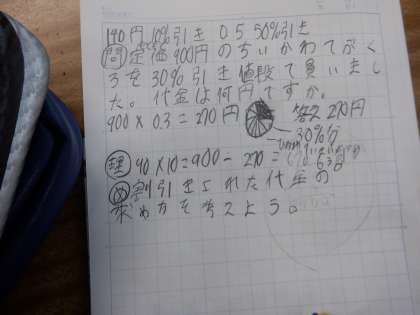 140円 10%引き 0.5 50%引き
問 定価900円のちいかわてがく
ろを30%引き値段で買いまし
た。代金は何円ですか。
900×0.3=270円 答え 270円
30%分
理 90×10=900-270= 630
め 割引きされた代金の
求め方を考えよう。